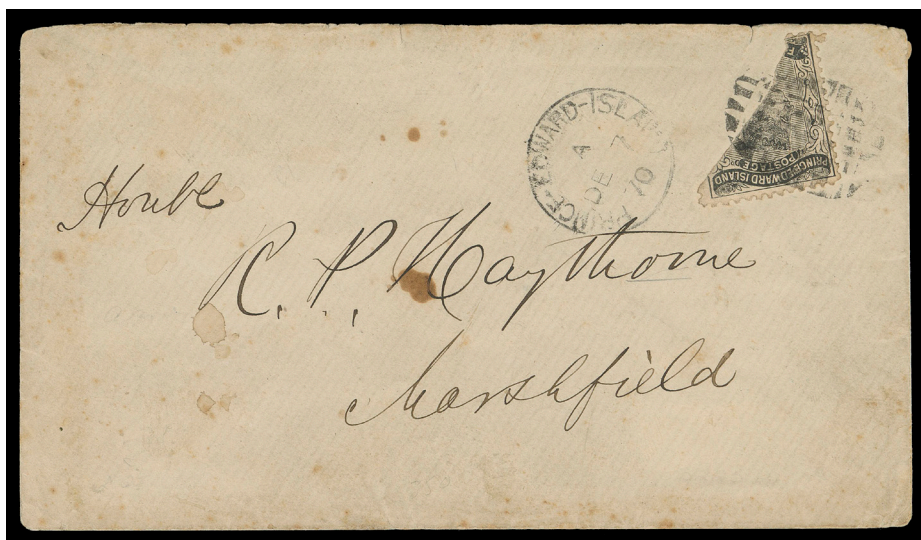 PRINCE EDWARD-ISLAND
A
DE 7
70
PRINCE EDWARD ISLAND
POSTAGE
Honble
R. P. Haythorne
Marshfield